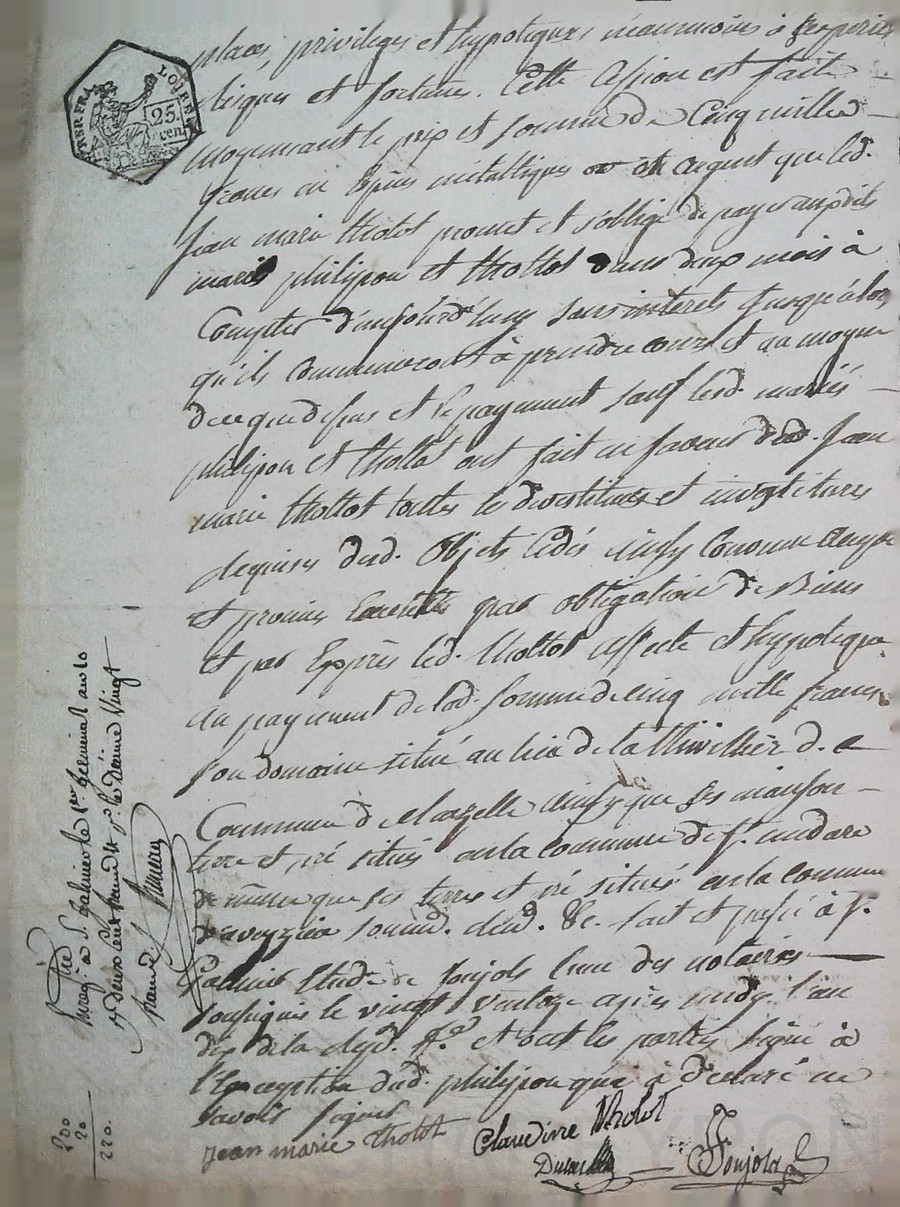 TIMBRE FRA
LOIRE
25.
cen
place, privileges et hypoteques neanmoins à ses perils
risques et fortunes. Cette Cession est faite
moyennant le prix et somme de Cinq mille
francs en Espèces métalliques or et argent que led.
Jean marie thiolot promet et soblige de payer auxdits
mariés philipon et thiollot dans deux mois à
Compter d'aujourd'huy sans interets jusqu'alors
qu'ils Commenceront à prendre cours et au moyen
de ce que dessus et le payement sauf lesd. mariés
philipon et thiollot ont fait en faveur dud. Jean
marie thiollot toutes les devestitures et investitures
requises desd. Objets Cédés ainsy Convenu
et promis Executer par obligation de Biens
et par Exprès led. thiollot affecte et hypoteque
au payement de lad. somme de cinq mille francs
son domaine situé au lieu de la thivilliér d.
Commune de Marzelle ainsy que ses maison
terre et pré situés en la commune de st. medare
de même que ses terres et pré situés en la commune
d'aveyzieu soumd. clud. &c. fait et passé à st.
Galmier Etude de Poujols l'une des notaires
soussignés le vingt ventose après midy l'an
dix de la Repd. fse. et ont les parties signé à
l'Exception dud. philipon qui à declaré ne
savoir signer
jean marie tholot Claudinne tholot
Poujols
Enreg. à St. Galmier le 1er Germinal an 10
deux cent francs le décime vingt
francs
200
20
220.